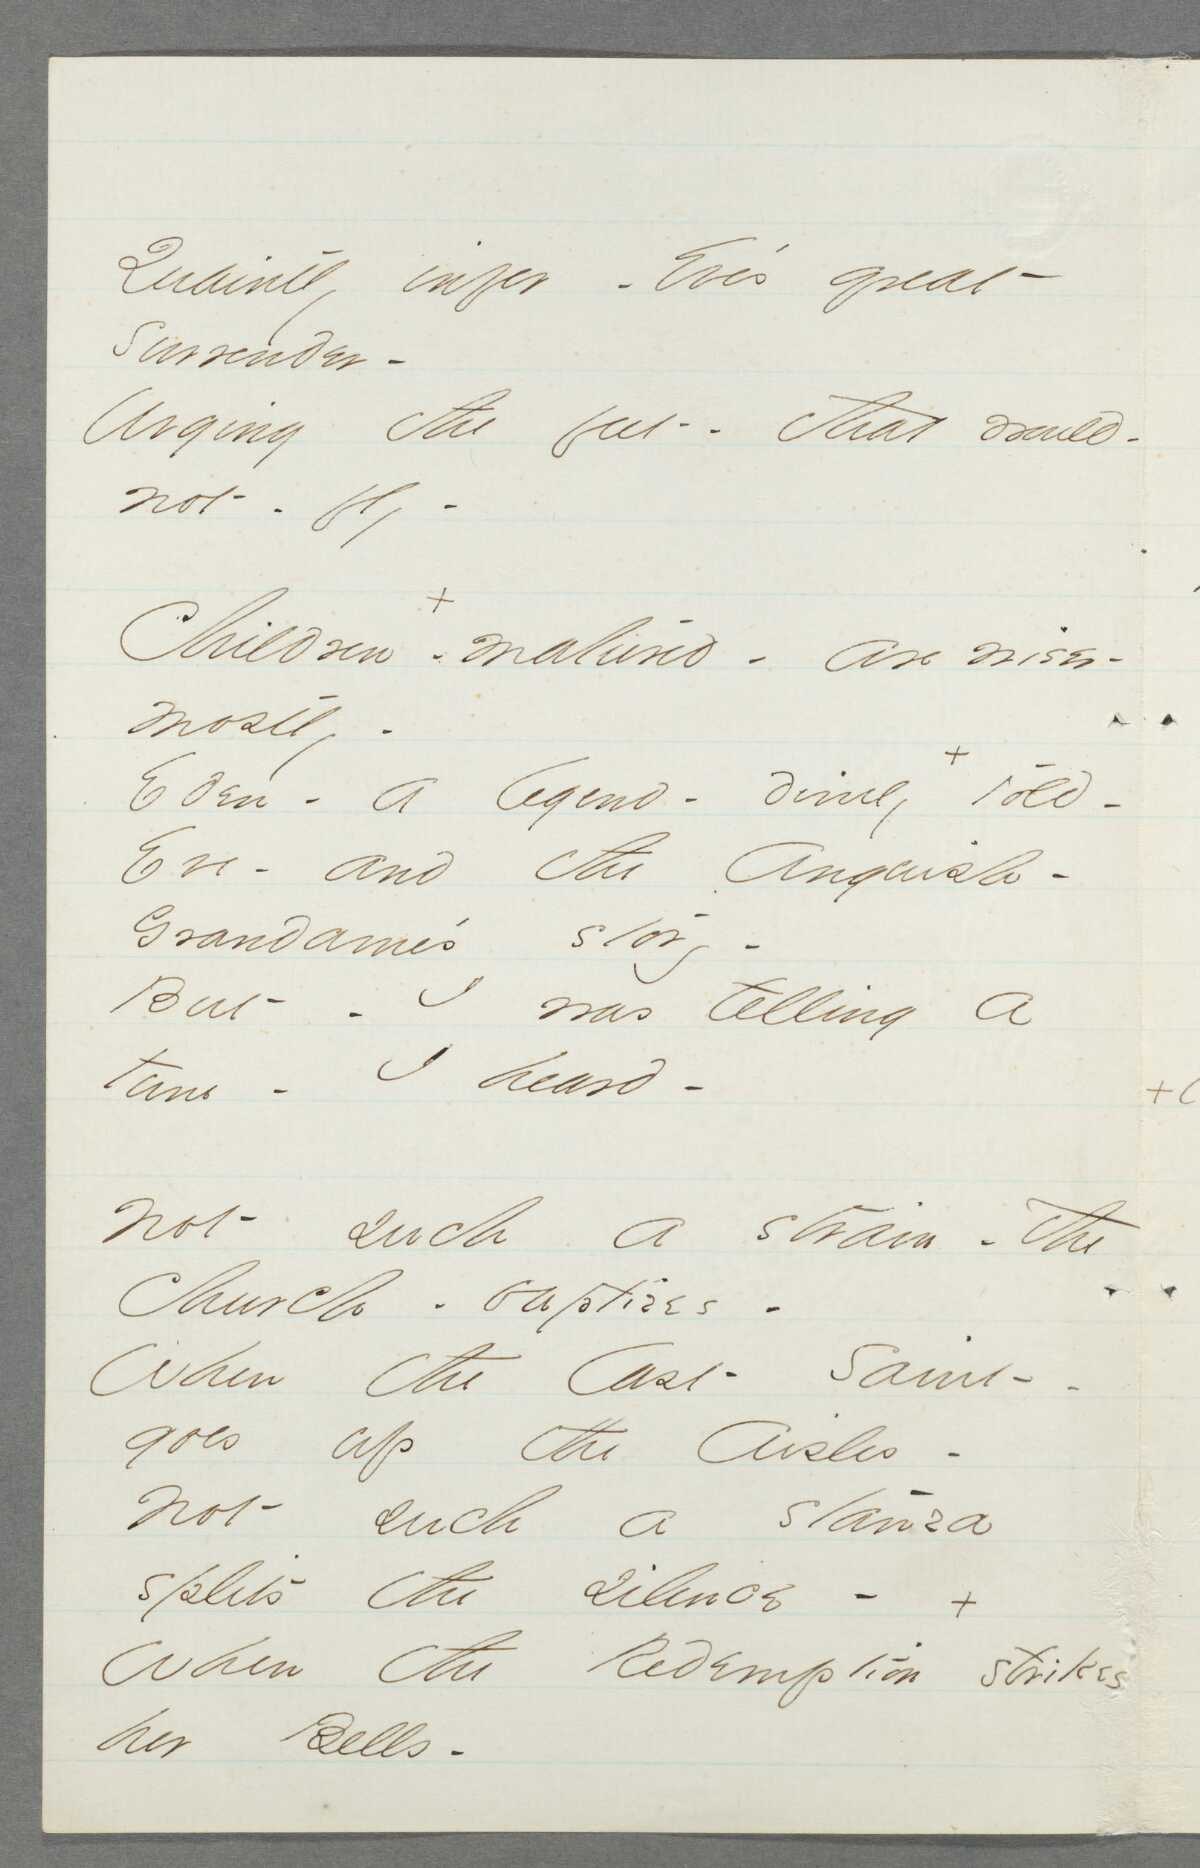 Quaintly infer - Eve's great
Surrender -
Urging the feet - that would -
not - fly -
Children + - matured - are wiser -
mostly -
Eden - a legend - dimly + told -
Eve - and the Anguish -
Grandame's story -
But - I was telling a
tune - I heard -
Not such a strain - the
Church - baptizes -
When the last Saint -
goes up the Aisles -
Not such a stanza
splits the silence - +
When the Redemption strikes
her Bells -